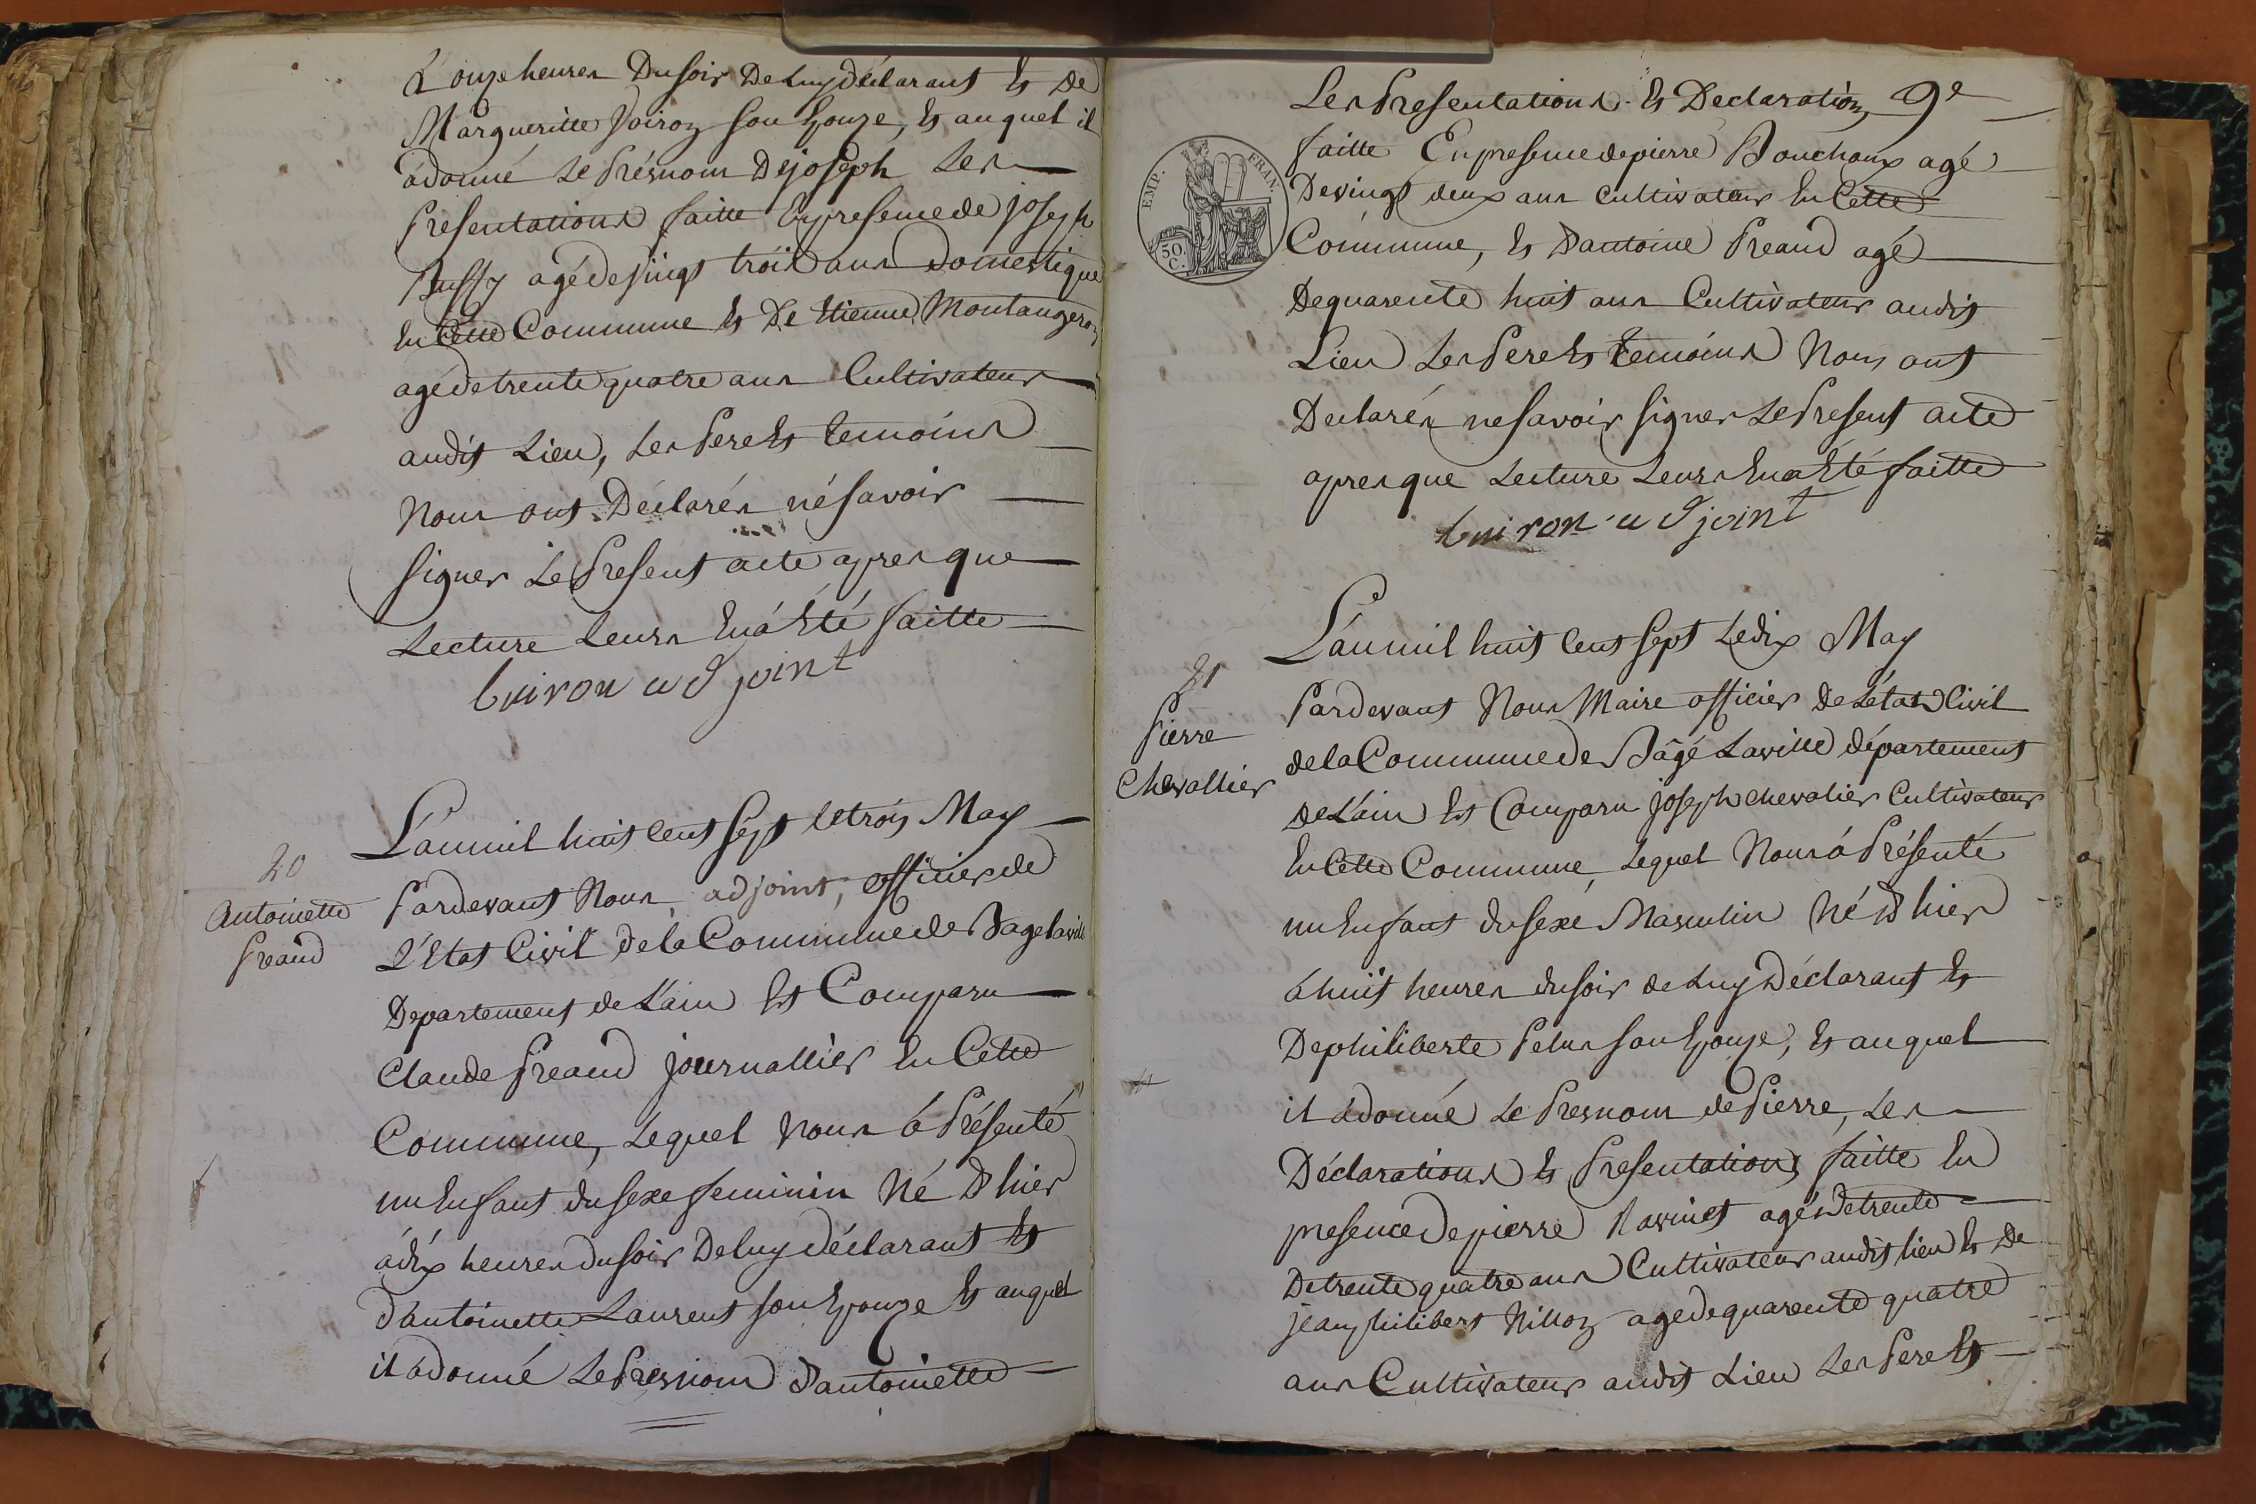 à onze heures Du soir De luy déclarant et De
Margueritte Voiron Son Epouze, et auquel il
a donné le Présnom De joseph Les
Presentations faitte En presence de joseph
Buffy agé de vingt trois ans Domestique
En Cette Commune et De Etienne Montangeron
agé de trente quatre ans Cultivateur
audit Lieu, Les Pere et temoins
Nous ont Déclarés né savoir
signer Le Present acte apres que
Lecture Leurs En á Eté faitte
buiron adjoint
20
antoinette
Preaud
L'an mil huit Cent Sept le trois May
Pardevant Nous adjoint, officier de
L'Etat Civil de la Commune de Bage laville
Departement de L'ain Est Comparu
Claude Preaud journallier En Cette
Commune, Lequel Nous à Présenté
un Enfant du sexe feminin Né D'hier
à dix heures du soir De luy déclarant Et
d'antoinette Laurent son Epouze Et auquel
il à donné Le Presnom d'antoinette
Les Presentations Et Declaration 9e
EMP. FRAN.
50
C.
faitte En presence de pierre Bouchoux agé
De vingt deux ans cultivateur En Cette
Commune, Et D'antoine Preaud agé
De quarente huit ans Cultivateur audit
Lieu Les Pere Et temoins Nous ont
Declarés ne savoir signer Le Present acte
apres que Lecture Leurs En a Eté faitte
buiron adjoint
21
Pierre
Chevallier
L'an mil huit Cent sept Le dix May
Pardevant Nous Maire officier De L'état Civil
de la Commune de Bâgé Laville département
De L'ain Est Comparu joseph chevalier Cultivateur
En Cette Commune, Lequel Nous à Présenté
un Enfant du sexe Masculin Né D'hier
à huit heures du soir de luy Déclarant Et
De philiberte Pelus son Epouze, Et auquel
il à donné Le Presnom de Pierre, Les
Déclarations Et Presentations faitte En
presence De pierre Ravinet agé De trente
De trente quatre ans Cultivateur audit lieu Et De
jean philibert Nillon agé de quarente quatre
ans Cultivateur audit Lieu Les Pere Et